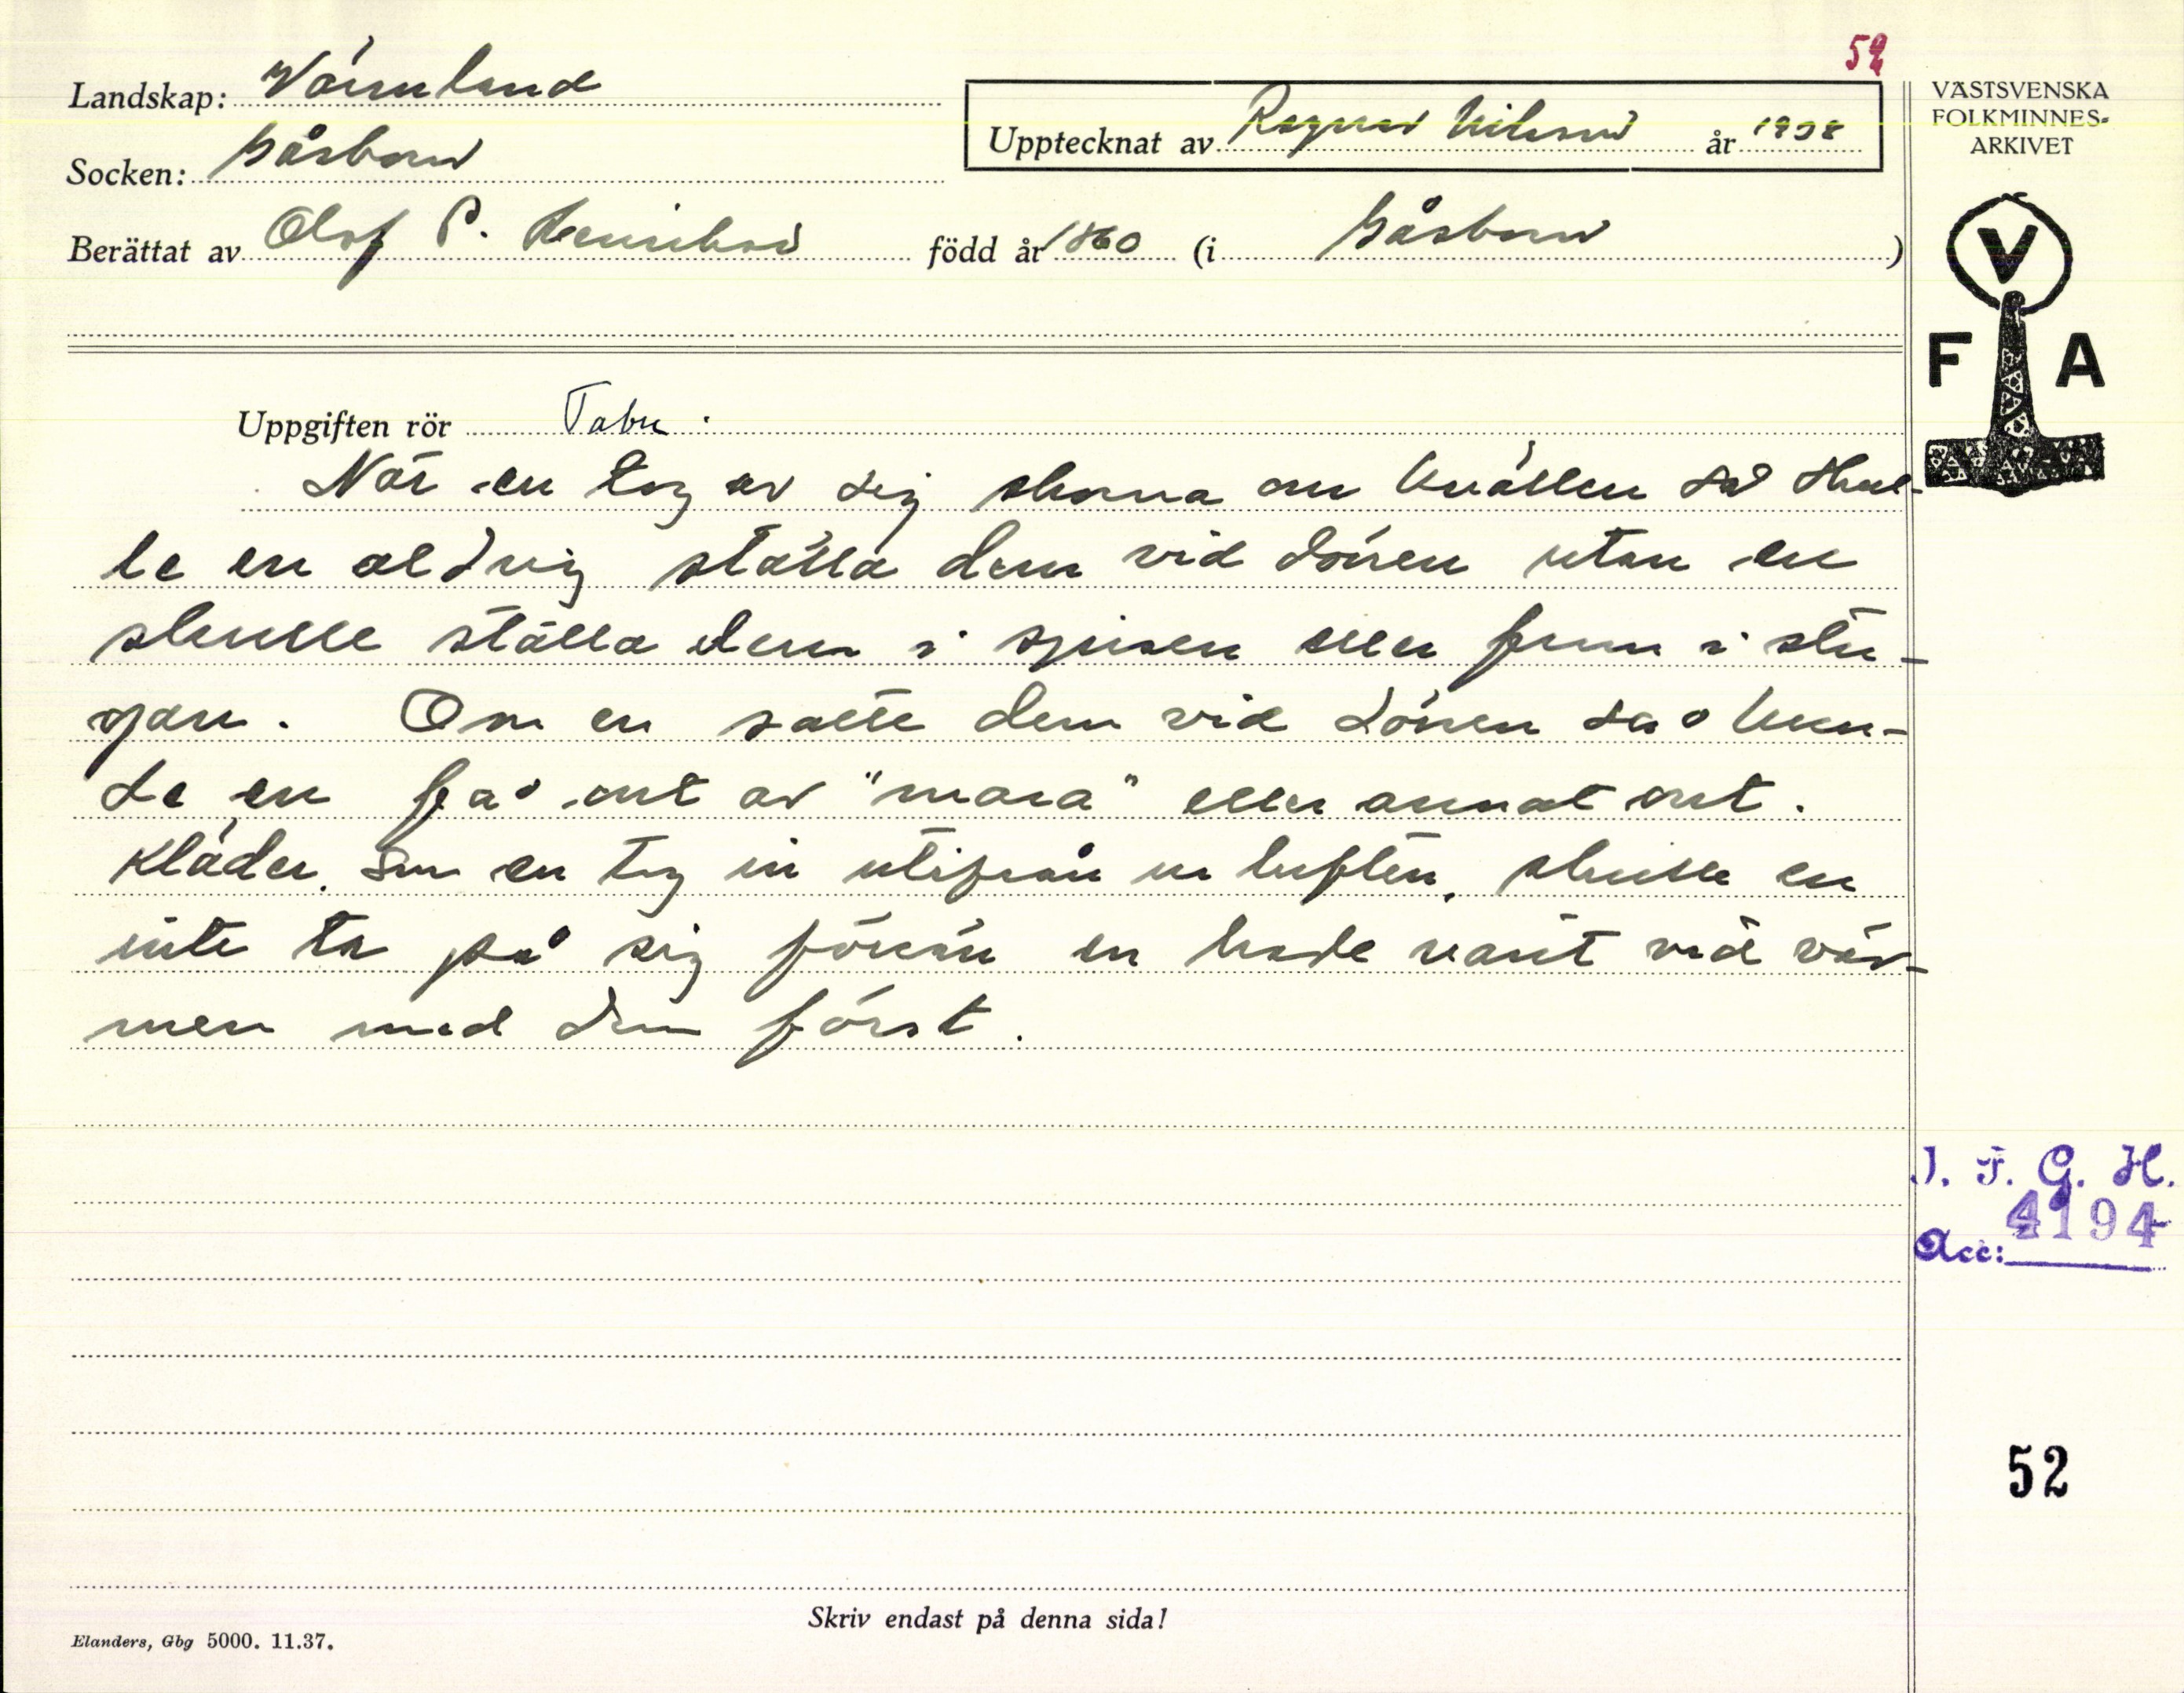 52
Landskap: Värmland
Upptecknat av Ragnar Nilsson år 1938
VÄSTSVENSKA
FOLKMINNES-
ARKIVET
Socken: Gåsborn
Berättat av Olof P. Henrikson född år 1860 (i Gåsborn)
V
F A
Uppgiften rör Tabu.
När en tog av sig skorna om kvällen så skul-
le en aldrig ställa dem vid dörren utan en
skulle ställa dem i spisen eller fram i stu-
gan. Om en satte dem vid dörren så kun-
de en få ont av "mara" eller annat ont.
Kläder, som en tog in utifrån ur luften, skulle en
inte ta på sig förrän en hade varit vid vär-
men med dem först.
I. F. G. H.
4194
Acc:
52
Skriv endast på denna sida!
Elanders, Gbg 5000. 11.37.